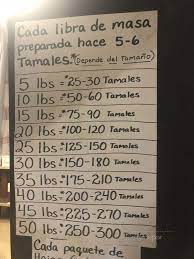 Cada libra de masa
preparada hace 5-6
Tamales.*(Depende del Tamaño)
5 lbs =*25-30 Tamales
10 lbs =*50-60 Tamales
15 lbs =*75-90 Tamales
20 lbs =*100-120 Tamales
25 lbs =*125-150 Tamales
30 lbs =*150-180 Tamales
35 lbs =*175-210 Tamales
40 lbs =*200-240 Tamales
45 lbs =*225-270 Tamales
50 lbs =*250-300 Tamales
Cada paquete de